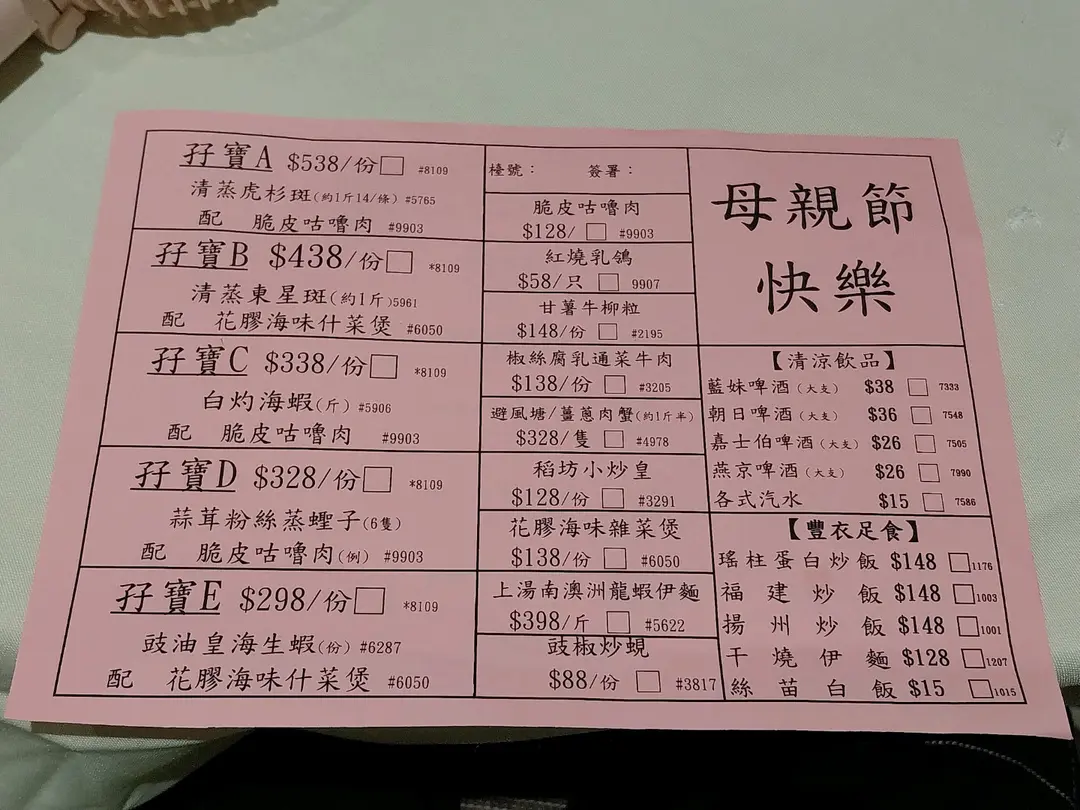 孖寶A $538/份□ #8109
清蒸虎杉斑(約1斤14/條) #5765
配 脆皮咕嚕肉 #9903
孖寶B $438/份□ *8109
清蒸東星斑(約1斤)5961
配 花膠海味什菜煲 #6050
孖寶C $338/份□ *8109
白灼海蝦(斤) #5906
配 脆皮咕嚕肉 #9903
孖寶D $328/份□ *8109
蒜茸粉絲蒸蟶子(6隻)
配 脆皮咕嚕肉(例) #9903
孖寶E $298/份□ *8109
豉油皇海生蝦(份) #6287
配 花膠海味什菜煲 #6050
檯號： 簽署：
脆皮咕嚕肉
$128/ □ #9903
紅燒乳鴿
$58/只 □ 9907
甘薯牛柳粒
$148/份 □ #2195
椒絲腐乳通菜牛肉
$138/份 □ #3205
避風塘/薑蔥肉蟹(約1斤半)
$328/隻 □ #4978
稻坊小炒皇
$128/份 □ #3291
花膠海味雜菜煲
$138/份 □ #6050
上湯南澳洲龍蝦伊麵
$398/斤 □ #5622
豉椒炒蜆
$88/份 □ #3817
母親節
快樂
【清涼飲品】
藍妹啤酒(大支) $38 □ 7333
朝日啤酒(大支) $36 □ 7548
嘉士伯啤酒(大支) $26 □ 7505
燕京啤酒(大支) $26 □ 7990
各式汽水 $15 □ 7586
【豐衣足食】
瑤柱蛋白炒飯 $148 □1176
福建炒飯 $148 □1003
揚州炒飯 $148 □1001
干燒伊麵 $128 □1207
絲苗白飯 $15 □1015